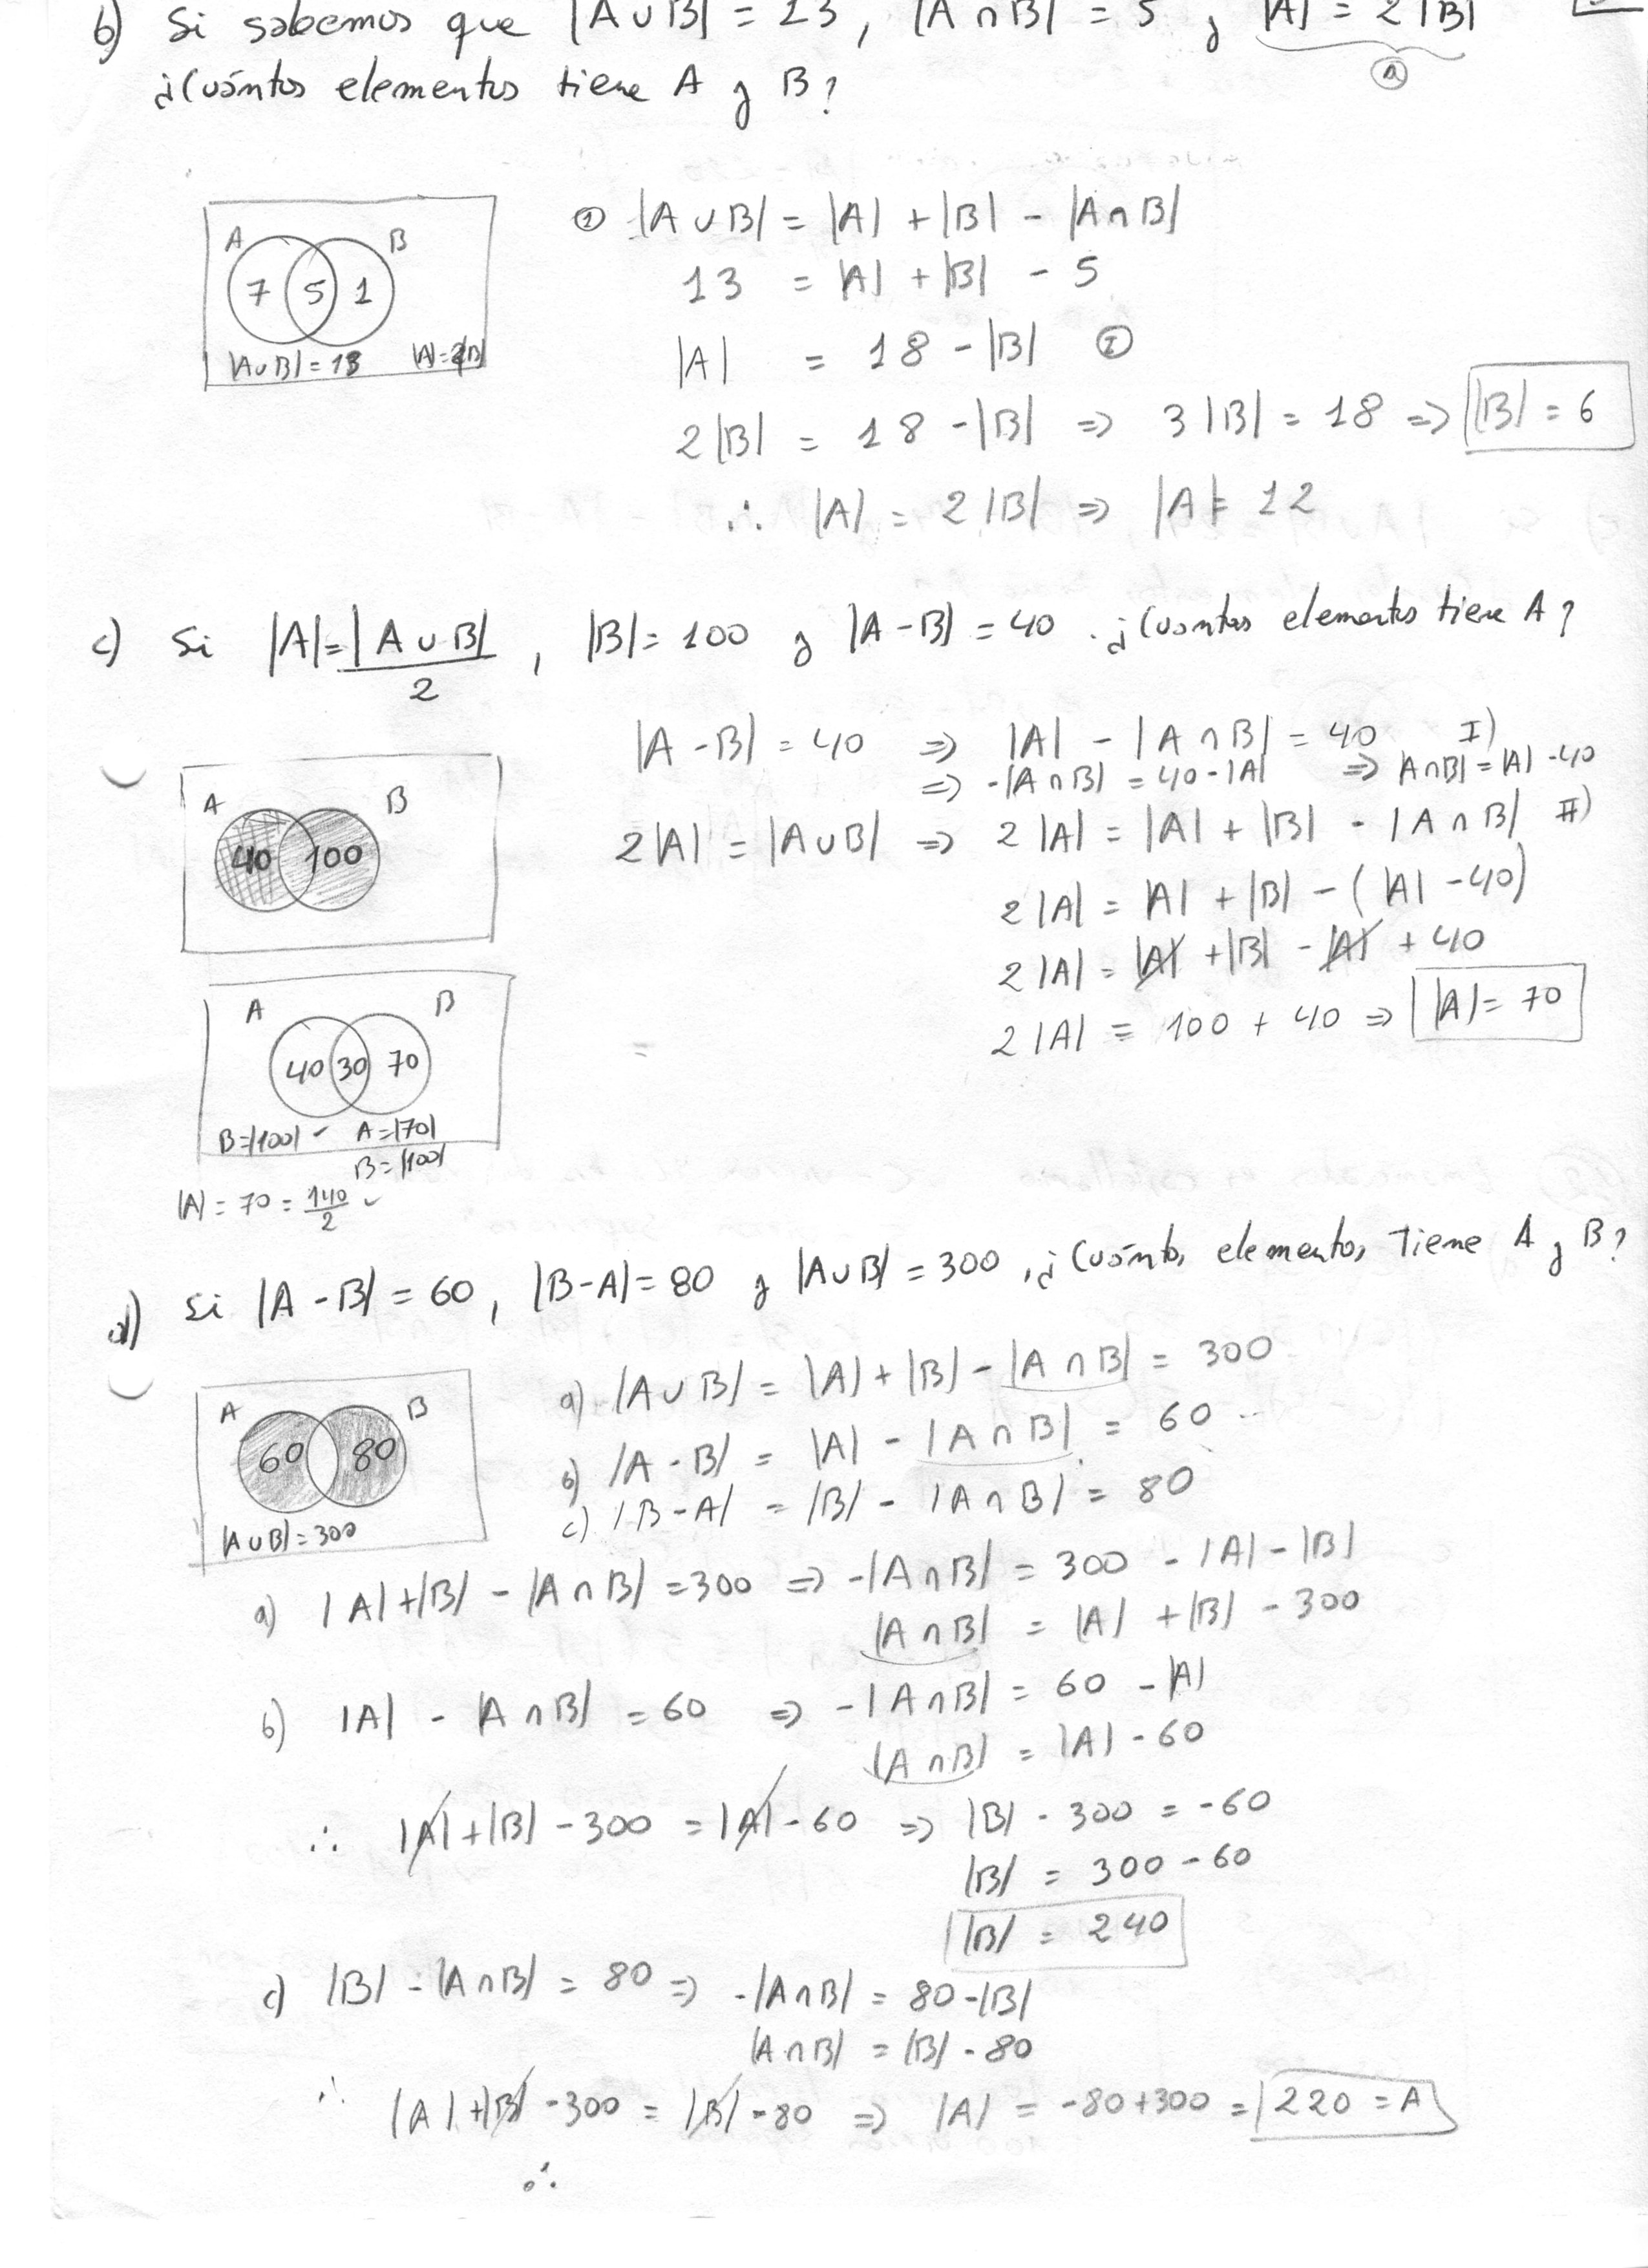 b) Si sabemos que |A∪B| = 13, |A∩B| = 5 y |A| = 2|B|
a
¿Cuántos elementos tiene A y B?
A B
7 5 1
|A∪B| = 13 |A|=2|B|
① |A∪B| = |A| + |B| - |A∩B|
13 = |A| + |B| - 5
|A| = 18 - |B| ①
2|B| = 18 - |B| ⇒ 3|B| = 18 ⇒ |B| = 6
∴ |A| = 2|B| ⇒ |A| = 12
c) Si |A| = |A∪B|/2, |B| = 100 y |A-B| = 40. ¿Cuántos elementos tiene A?
|A-B| = 40 ⇒ |A| - |A∩B| = 40 I)
⇒ -|A∩B| = 40-|A| ⇒ A∩B| = |A| -40
A B
40 100
2|A| = |A∪B| ⇒ 2|A| = |A| + |B| - |A∩B| II)
2|A| = |A| + |B| - (|A| - 40)
2|A| = |A| + |B| - |A| + 40
2|A| = 100 + 40 ⇒ |A| = 70
=
A B
40 30 70
B=|100| ✓ A=|70|
B=|100|
|A| = 70 = 140/2 ✓
d) Si |A-B| = 60, |B-A| = 80 y |A∪B| = 300, ¿Cuántos elementos tiene A y B?
A B
60 80
|A∪B| = 300
a) |A∪B| = |A| + |B| - |A∩B| = 300
b) |A-B| = |A| - |A∩B| = 60
c) |B-A| = |B| - |A∩B| = 80
a) |A|+|B| - |A∩B| = 300 ⇒ -|A∩B| = 300 - |A| - |B|
|A∩B| = |A| + |B| - 300
b) |A| - |A∩B| = 60 ⇒ -|A∩B| = 60 - |A|
|A∩B| = |A| - 60
∴ |A|+|B| - 300 = |A| - 60 ⇒ |B| - 300 = -60
|B| = 300 - 60
|B| = 240
c) |B| - |A∩B| = 80 ⇒ -|A∩B| = 80-|B|
|A∩B| = |B| - 80
∴ |A|+|B| - 300 = |B| - 80 ⇒ |A| = -80+300 = 220 = A
∴